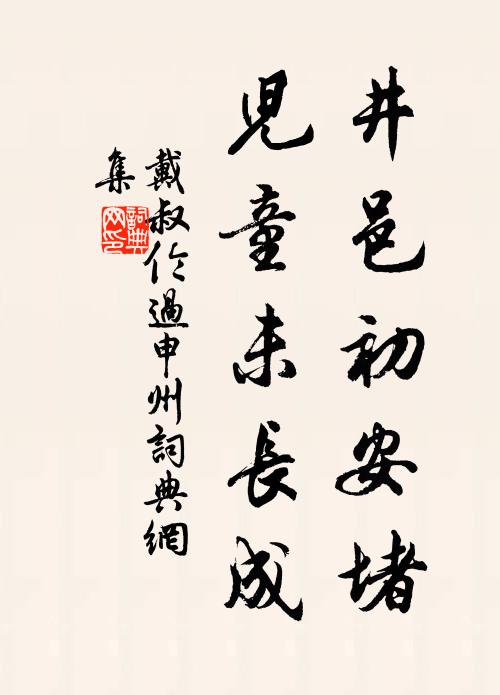 井邑初安堵
兒童未長成
戴叔伦過申州詞典網
集
詞典网印